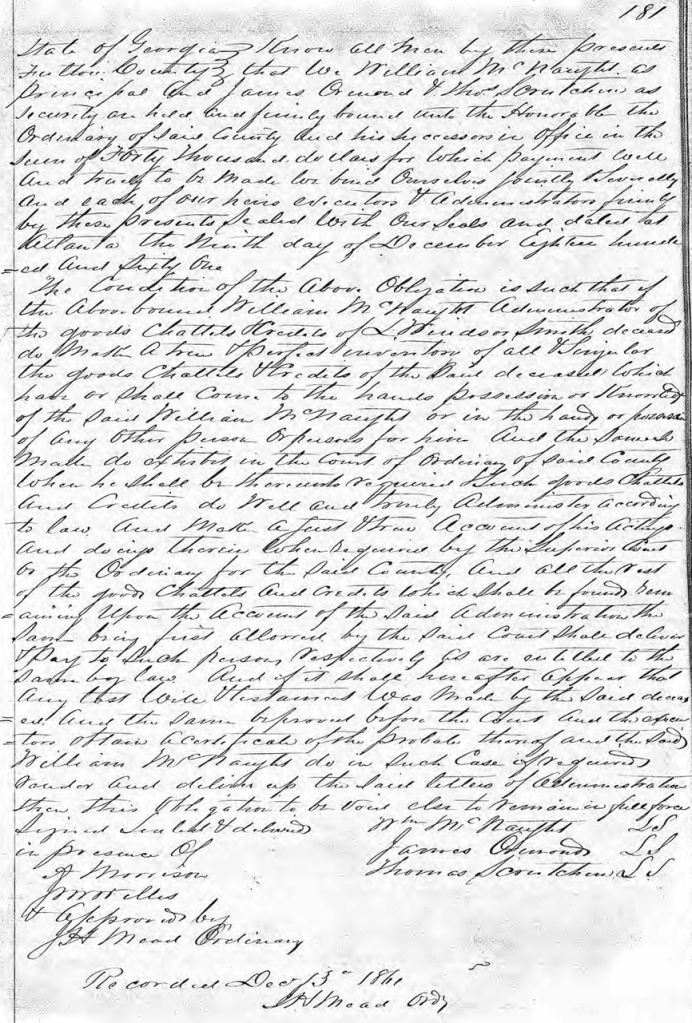 181
State of Georgia } Know all Men by these Presents
Fulton County } that We William McNaught as
Principal and James Ormond & Thos Scrutchin as
Security are held and firmly bound unto the Honorable the
Ordinary of said County and his successors in office in the
sum of Forty Thousand dollars for Which payment Well
And truly to be Made We bind Ourselves Jointly & Severally
and each of our heirs executors & Administrators firmly
by these Presents Sealed With Our Seals and dated at
Atlanta the Ninth day of December Eighteen hundr
=ed And Sixty One
The Condition of the Above Obligation is such that if
the Above bound William McNaught Administrator of
the goods Chattels & Credits of L Windsor Smith deceased
do Make A true & Perfect inventory of all & Singular
the goods Chattels & Credits of the Said deceased Which
have or Shall Come to the hands possession or Knowledge
of the Said William McNaught or in the hands or possession
of Any Other person Or persons for him And the Same So
Made do exhibit in the Court of Ordinary of Said County
When he Shall be thereunto required & Such goods Chattels
And Credits do Well and truly Administer according
to law And Make a Just & true Account of his Actings
And doings therein When required by the Superior Court
or the Ordinary for the Said County, And all the rest
of the goods Chattels And Credits Which Shall be found Rem
=aining Upon the Account of the Said Administration the
Same being first Allowed by the Said Court Shall deliver
& Pay to Such persons respectively as are entitled to the
Same by law And if it Shall hereafter Appear that
Any last Will & testament Was Made by the Said deceas
=ed And the Same be proved before the Court And the execu
=tors obtain a certificate of the Probate thereof and the Said
William McNaught do in Such Case if required
render And deliver up the Said letters of Administration
then this Obligation to be void else to remain in full force
Signed Sealed & delivered Wm McNaught LS
in presence Of James Ormond LS
A Morrison Thomas Scrutchin LS
& Approved by
J H Mead Ordinary
Recorded Dec 13th 1861
J H Mead Ordy